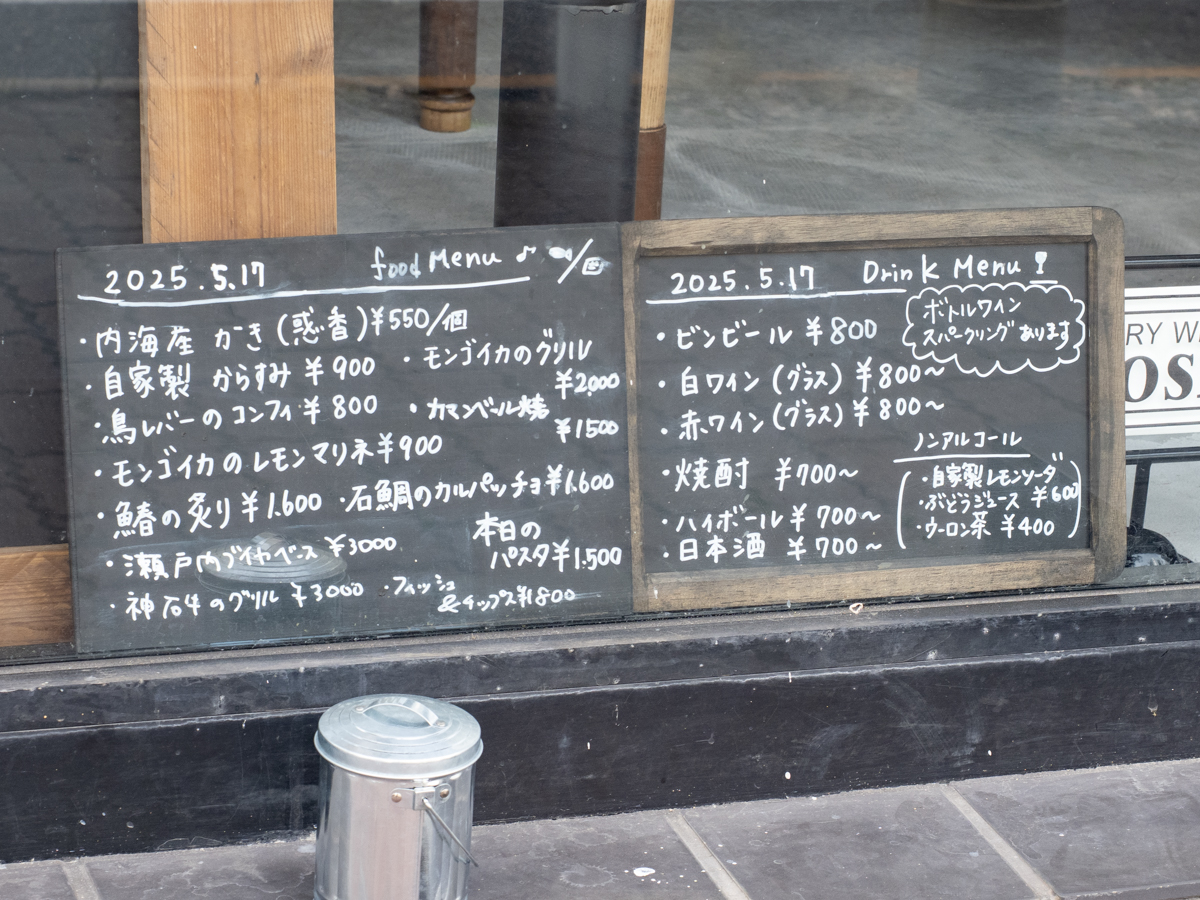 2025.5.17 food Menu ♪
・内海産 かき(惑香)¥550/個
・自家製 からすみ ¥900
・鳥レバーのコンフィ ¥800
・モンゴイカのレモンマリネ ¥900
・鰆の炙り ¥1.600
・瀬戸内ブイヤベース ¥3000
・神石牛のグリル ¥3000
・モンゴイカのグリル
¥2.000
・カマンベール焼
¥1500
・石鯛のカルパッチョ ¥1.600
本日の
パスタ ¥1.500
・フィッシュ
&チップス ¥1800
2025.5.17 Drink Menu
・ビンビール ¥800
・白ワイン(グラス) ¥800〜
・赤ワイン(グラス) ¥800〜
・焼酎 ¥700〜
・ハイボール ¥700〜
・日本酒 ¥700〜
ボトルワイン
スパークリング あります
ノンアルコール
・自家製レモンソーダ
・ぶどうジュース ¥600
・ウーロン茶 ¥400
RY W
OS